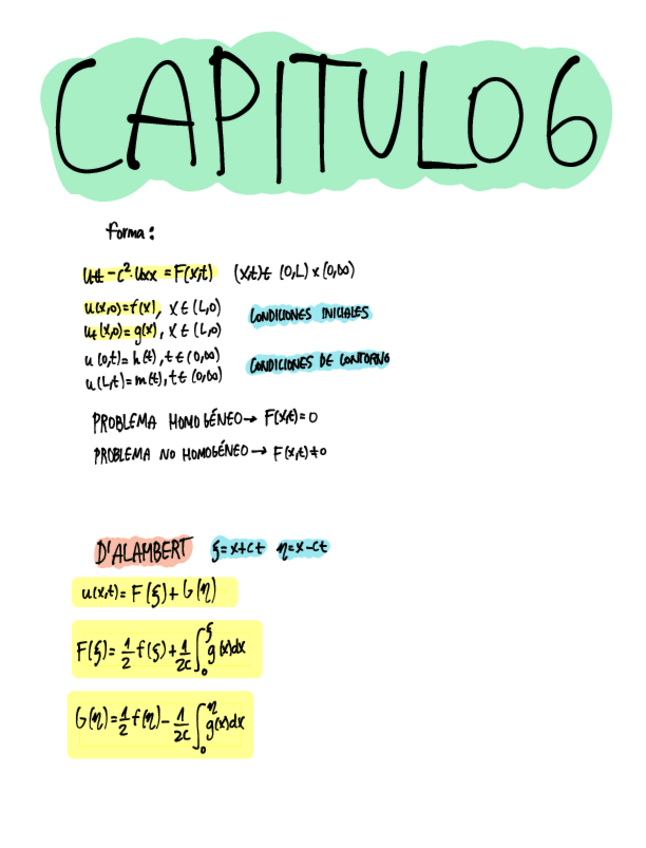 CAPITULO 6
forma:
Utt - c²·Uxx = F(x,t)   (x,t) ∈ (0,L) x (0,∞)
u(x,0) = f(x), x ∈ (L,0)
CONDICIONES INICIALES
ut(x,0) = g(x), x ∈ (L,0)
u(0,t) = h(t), t ∈ (0,∞)
CONDICIONES DE CONTORNO
u(L,t) = m(t), t ∈ (0,∞)
PROBLEMA HOMOGÉNEO → F(x,t) = 0
PROBLEMA NO HOMOGÉNEO → F(x,t) ≠ 0
D'ALAMBERT   ξ = x+ct   η = x-ct
u(x,t) = F(ξ) + G(η)
F(ξ) = 1/2 f(ξ) + 1/2c ∫₀^ξ g(x)dx
G(η) = 1/2 f(η) - 1/2c ∫₀^η g(x)dx